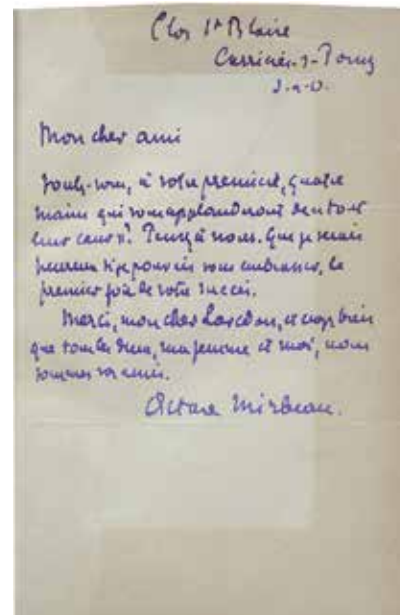 Clos St Blaise
Carrières-s-Poissy
S.-&-O.
Mon cher ami
Voulez-vous, à votre première, quatre
mains qui vous applaudiront de tout
leur cœur? Pensez à nous. Que je serais
heureux si je pouvais vous embrasser, le
premier soir de votre succès.
Merci, mon cher et croyez bien
que tous les deux, ma femme et moi, nous
sommes vos amis.
Octave Mirbeau.